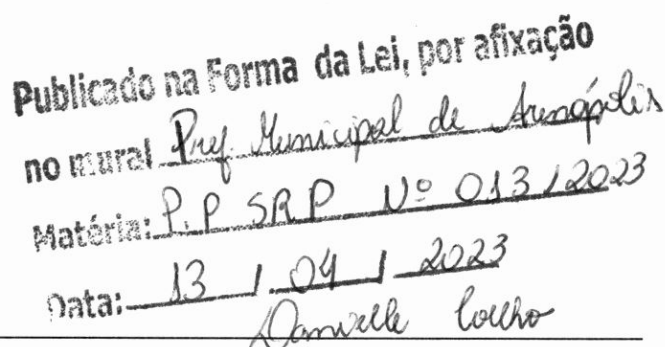 Publicado na Forma da Lei, por afixação
no mural Pref. Municipal de Arenápolis
Matéria: P.P SRP Nº 013/2023
Data: 13 / 04 / 2023
Danielle Coelho